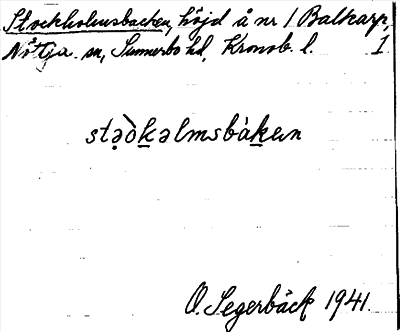 Stockholmsbacken, höjd å nr 1 Balkarp,
Nöttja sn, Sunnerbo hd, Kronob. l. 1
stạd̀ḵəlmsbàḵen
O. Segerbäck 1941.